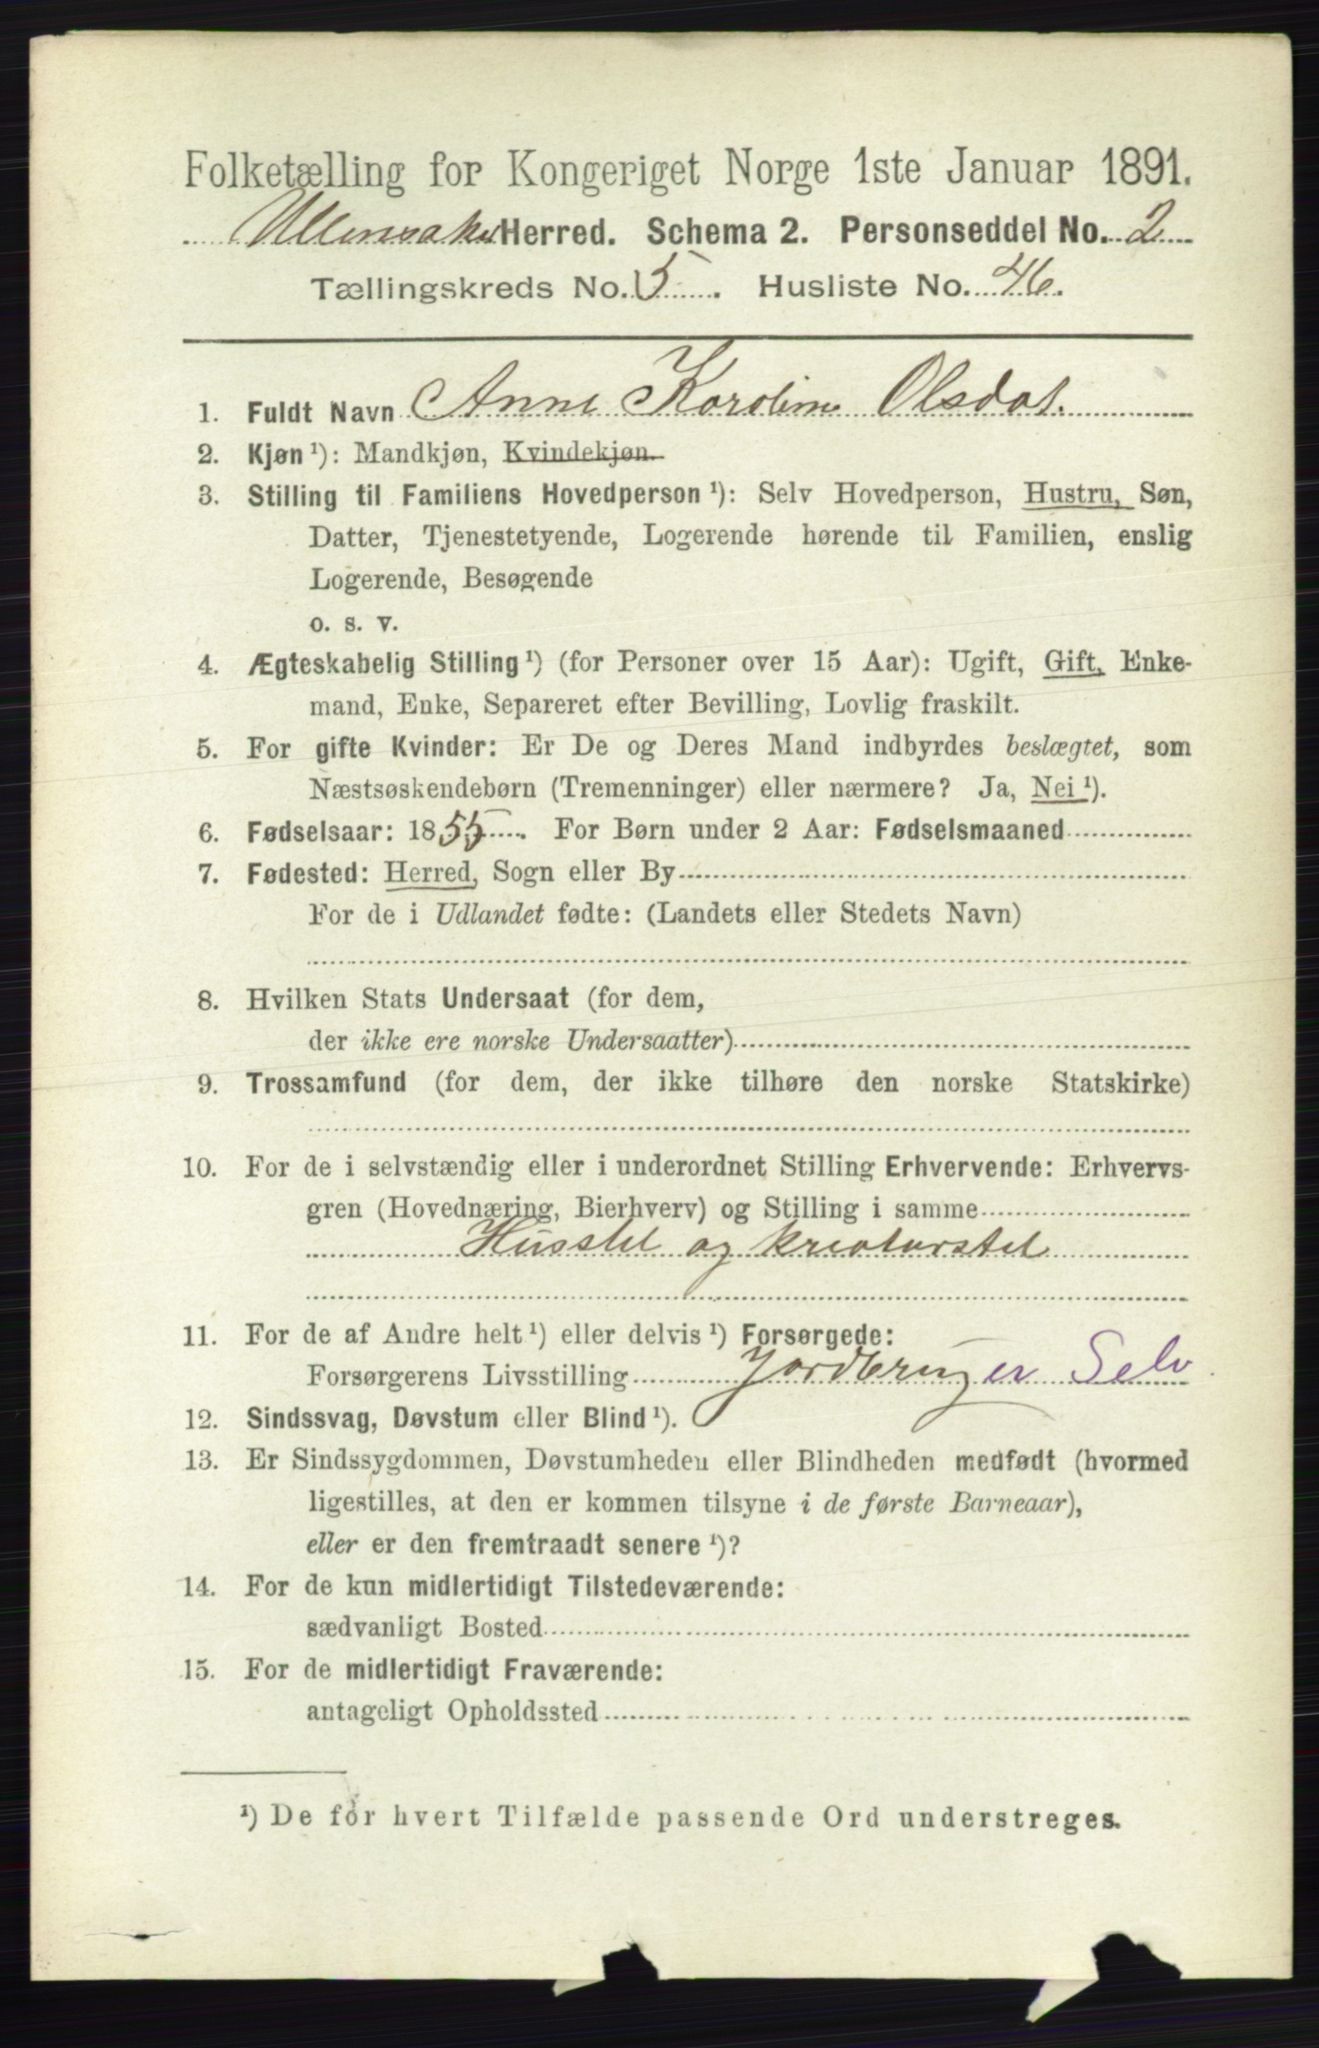 Folketælling for Kongeriget Norge 1ste Januar 1891.
Ullensaker Herred. Schema 2. Personseddel No. 2
Tællingskreds No. 5. Husliste No. 46.
1. Fuldt Navn Anne Karoline Olsdat.
2. Kjøn ¹): Mandkjøn, Kvindekjøn.
3. Stilling til Familiens Hovedperson ¹): Selv Hovedperson, Hustru, Søn,
Datter, Tjenestetyende, Logerende hørende til Familien, enslig
Logerende, Besøgende
o. s. v.
4. Ægteskabelig Stilling ¹) (for Personer over 15 Aar): Ugift, Gift, Enke-
mand, Enke, Separeret efter Bevilling, Lovlig fraskilt.
5. For gifte Kvinder: Er De og Deres Mand indbyrdes beslægtet, som
Næstsøskendebørn (Tremenninger) eller nærmere? Ja, Nei ¹).
6. Fødselsaar: 1855. For Børn under 2 Aar: Fødselsmaaned
7. Fødested: Herred, Sogn eller By
For de i Udlandet fødte: (Landets eller Stedets Navn)
8. Hvilken Stats Undersaat (for dem,
der ikke ere norske Undersaatter)
9. Trossamfund (for dem, der ikke tilhøre den norske Statskirke)
10. For de i selvstændig eller i underordnet Stilling Erhvervende: Erhvervs-
gren (Hovednæring, Bierhverv) og Stilling i samme
Husstel og kreaturstel
11. For de af Andre helt ¹) eller delvis ¹) Forsørgede:
Forsørgerens Livsstilling Jordbruger Selv
12. Sindssvag, Døvstum eller Blind ¹).
13. Er Sindssygdommen, Døvstumheden eller Blindheden medfødt (hvormed
ligestilles, at den er kommen tilsyne i de første Barneaar),
eller er den fremtraadt senere ¹)?
14. For de kun midlertidigt Tilstedeværende:
sædvanligt Bosted
15. For de midlertidigt Fraværende:
antageligt Opholdssted
¹) De før hvert Tilfælde passende Ord understreges.